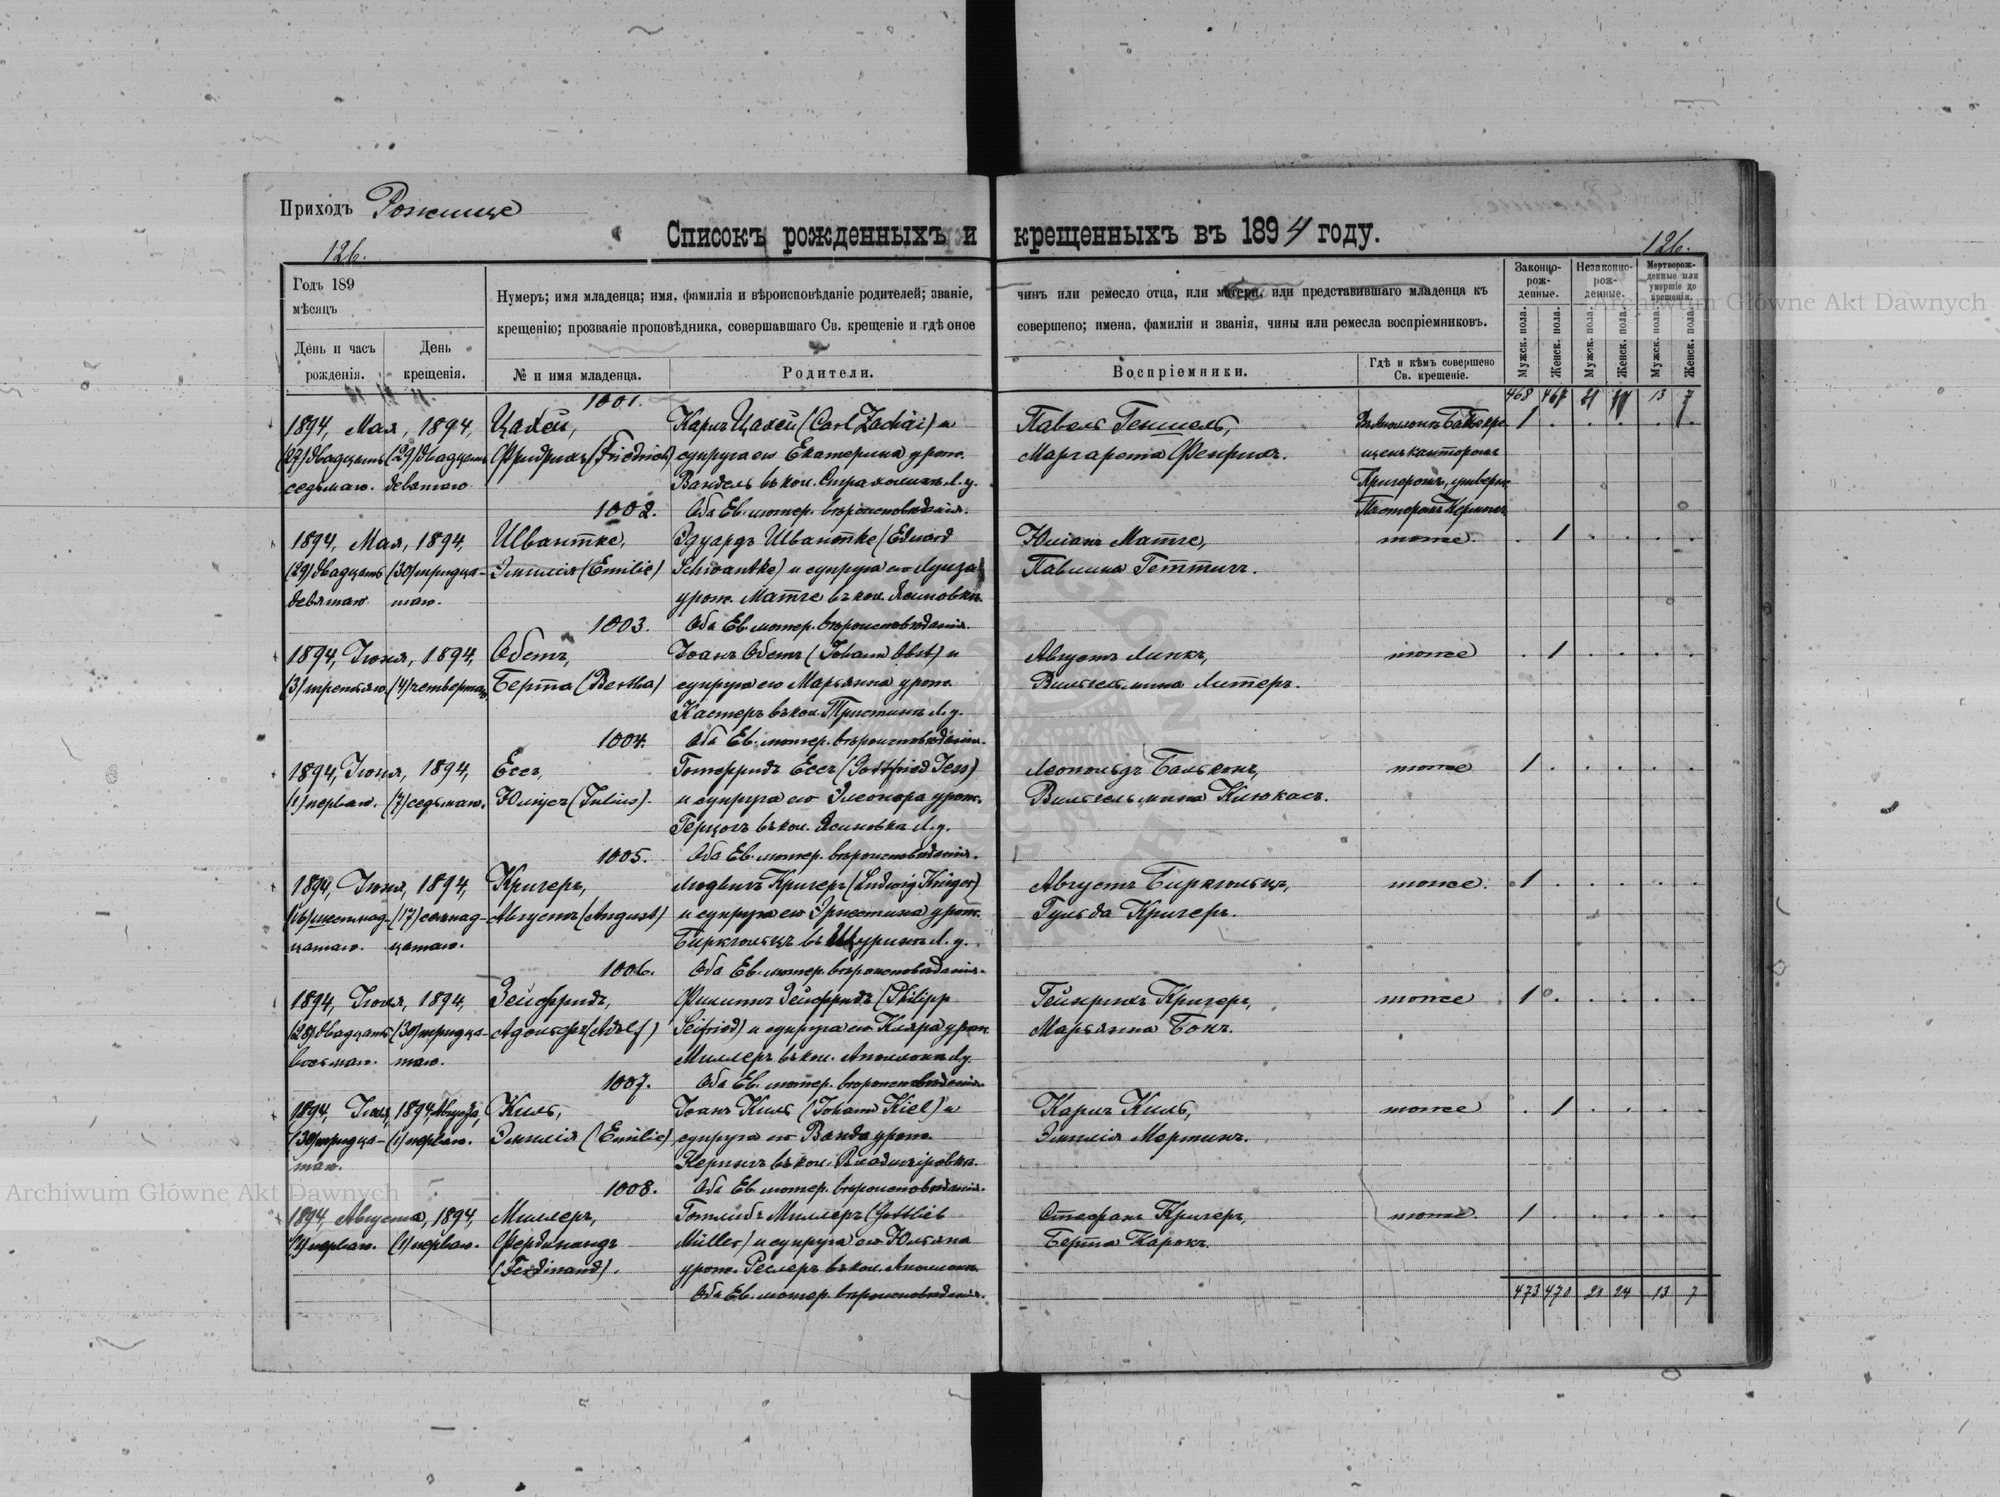 Приходъ Рожище
126.
Списокъ рожденныхъ и крещенныхъ въ 1894 году.
126.
Годъ 189
мѣсяцъ
День и часъ рожденія.
День крещенія.
Нумеръ; имя младенца; имя, фамилія и вѣроисповѣданіе родителей; званіе, чинъ или ремесло отца, или матери, или представившаго младенца къ
крещенію; прозваніе проповѣдника, совершавшаго Св. крещеніе и гдѣ оное совершено; имена, фамиліи и званія, чины или ремесла воспріемниковъ.
№ и имя младенца.
Родители.
Воспріемники.
Гдѣ и кѣмъ совершено Св. крещеніе.
Законно-рож-денные.
Незаконно-рож-денные.
Мертворож-денные или умершіе до крещенія.
Мужск. пола. Женск. пола. Мужск. пола. Женск. пола. Мужск. пола. Женск. пола.
468 467 21 13 7
1001.
1894, Мая, 1894, Цахей, Карлъ Цахей (Carl Zachäi) и Павелъ Геншель, 1
(27) двадцать (29) двадцать Фридрихъ (Friedrich) супруга его Екатерина урож. Маргарета Фенрихъ.
седьмаго. девятаго Вандель въ кол. Л.у. Кригеромъ,
1002. Оба Ев. лютер. вѣроисповѣданія.
1894, Мая, 1894, Швантке, Эдуардъ Швантке (Eduard Юліанъ Матте, тоже. 1
(29) двадцать (30) тридца- Эмилія (Emilie) Schwantke) и супруга его Луиза Павлина Геттигъ.
девятаго таго. урож. Матте въ кол. Ясиновка
1003. Оба Ев. лютер. вѣроисповѣданія.
1894, Іюня, 1894, Обстъ, Іоанъ Обстъ (Johann Obst) и Августъ Линкъ, тоже 1
(3) третьяго (4) четвертаго Берта (Bertha) супруга его Марьянна урож. Вильгельмина Литеръ.
Кастеръ въ кол. Л.у.
1004. Оба Ев. лютер. вѣроисповѣданія.
1894, Іюня, 1894, Ессъ, Готфридъ Ессъ (Gottfried Jess) Леопольдъ тоже 1
(1) перваго. (7) седьмаго. Юліусъ (Julius). и супруга его Элеонора урож. Вильгельмина Клюкасъ.
Герцогъ въ кол. Ясиновка Л.у.
1005. Оба Ев. лютер. вѣроисповѣданія.
1894, 1894, Кригеръ, Людвигъ Кригеръ (Ludwig Krieger) Августъ Биркгольцъ, тоже. 1
(16) шестнад- (17) семнад- Августъ (August) и супруга его Эрнестина урож. Гульда Кригеръ.
цатаго. цатаго. Биркгольцъ въ Щуринъ Л.у.
1006. Оба Ев. лютер. вѣроисповѣданія.
1894, 1894, Зейфридъ, Филиппъ Зейфридъ (Philipp Гейнрихъ Кригеръ, тоже 1
(28) двадцать (30) тридца- Адольфъ (Adolf) Seifried) и супруга его Клара урож. Марьянна Бонъ.
восьмаго. таго. Миллеръ въ кол. Аполонка Лу.
1007. Оба Ев. лютер. вѣроисповѣданія.
1894, Іюля, 1894, Августа, Киль, Іоанъ Киль (Johann Kiel) и Карлъ Киль, тоже 1
(30) тридца- (1) перваго. Эмилія (Emilie) супруга его Ванда урож. Эмилія Мартинъ.
таго. въ кол. Владиміровка.
1008. Оба Ев. лютер. вѣроисповѣданія.
1894, Августа, 1894, Миллеръ, Готлибъ Миллеръ (Gottlieb Стефанъ Кригеръ, тоже. 1
(1) перваго. (1) перваго. Фердинандъ Müller) и супруга его Юльяна Берта Карокъ.
(Ferdinand). урож. Реслеръ въ кол. Аполонка
Оба Ев. лютер. вѣроисповѣданія.
473 470 21 24 13 7
Archiwum Główne Akt Dawnych
Archiwum Główne Akt Dawnych